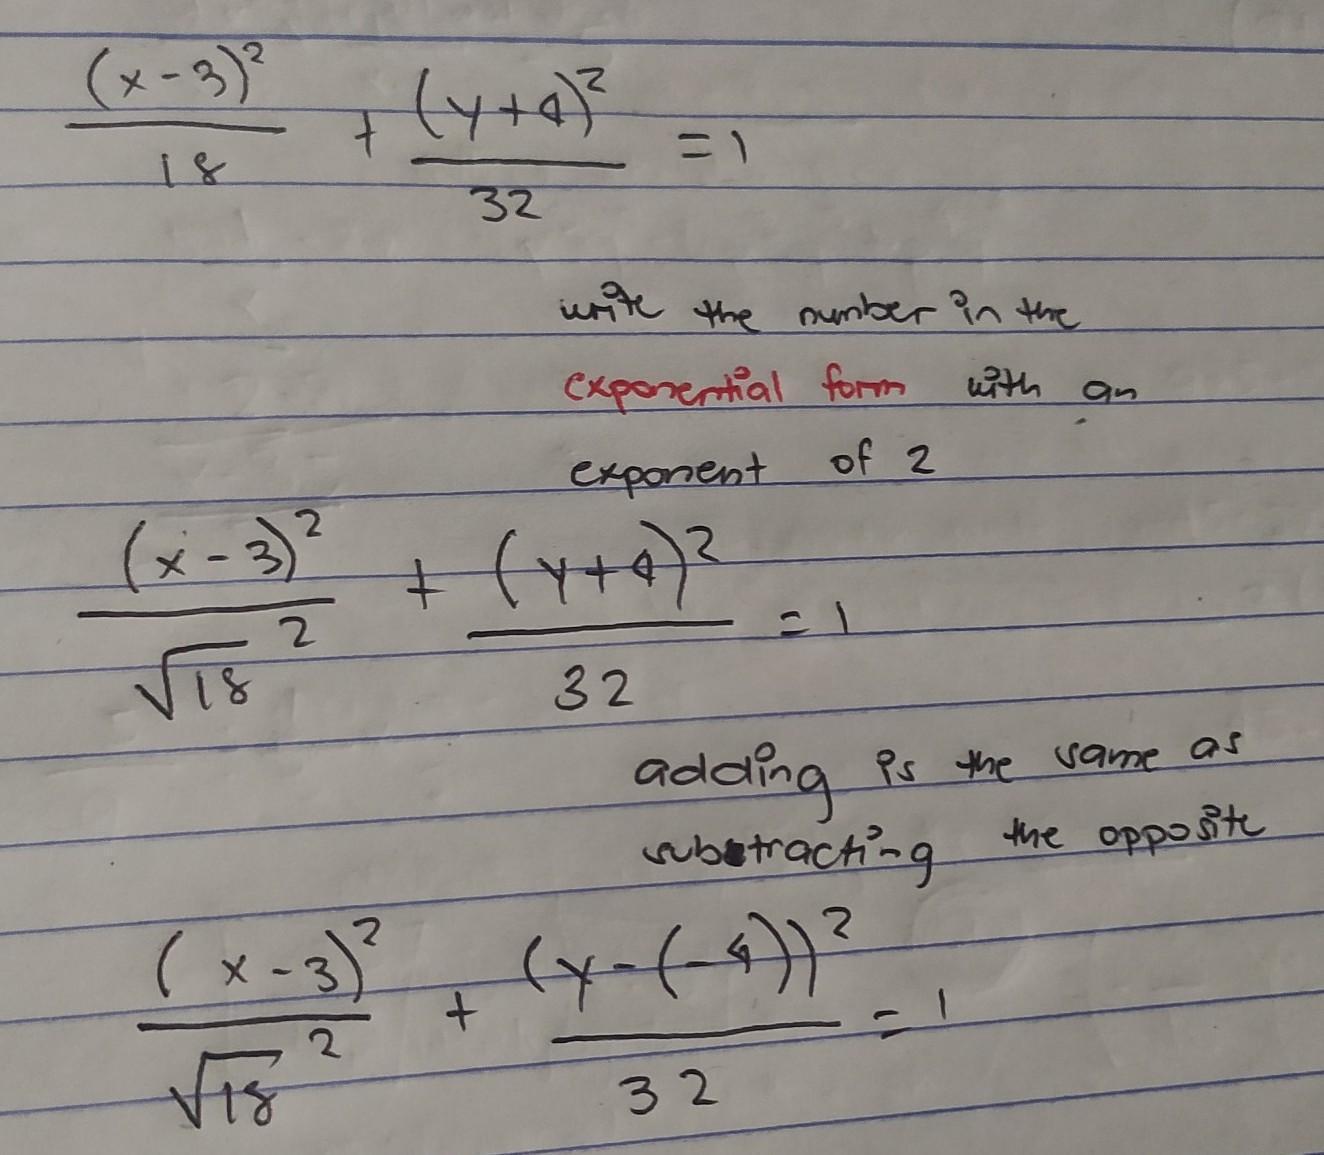 (x-3)²/18 + (y+4)²/32 = 1
write the number in the
exponential form with an
exponent of 2
(x-3)²/√18² + (y+4)²/32 = 1
adding is the same as
subtracting the opposite
(x-3)²/√18² + (y-(-4))²/32 = 1